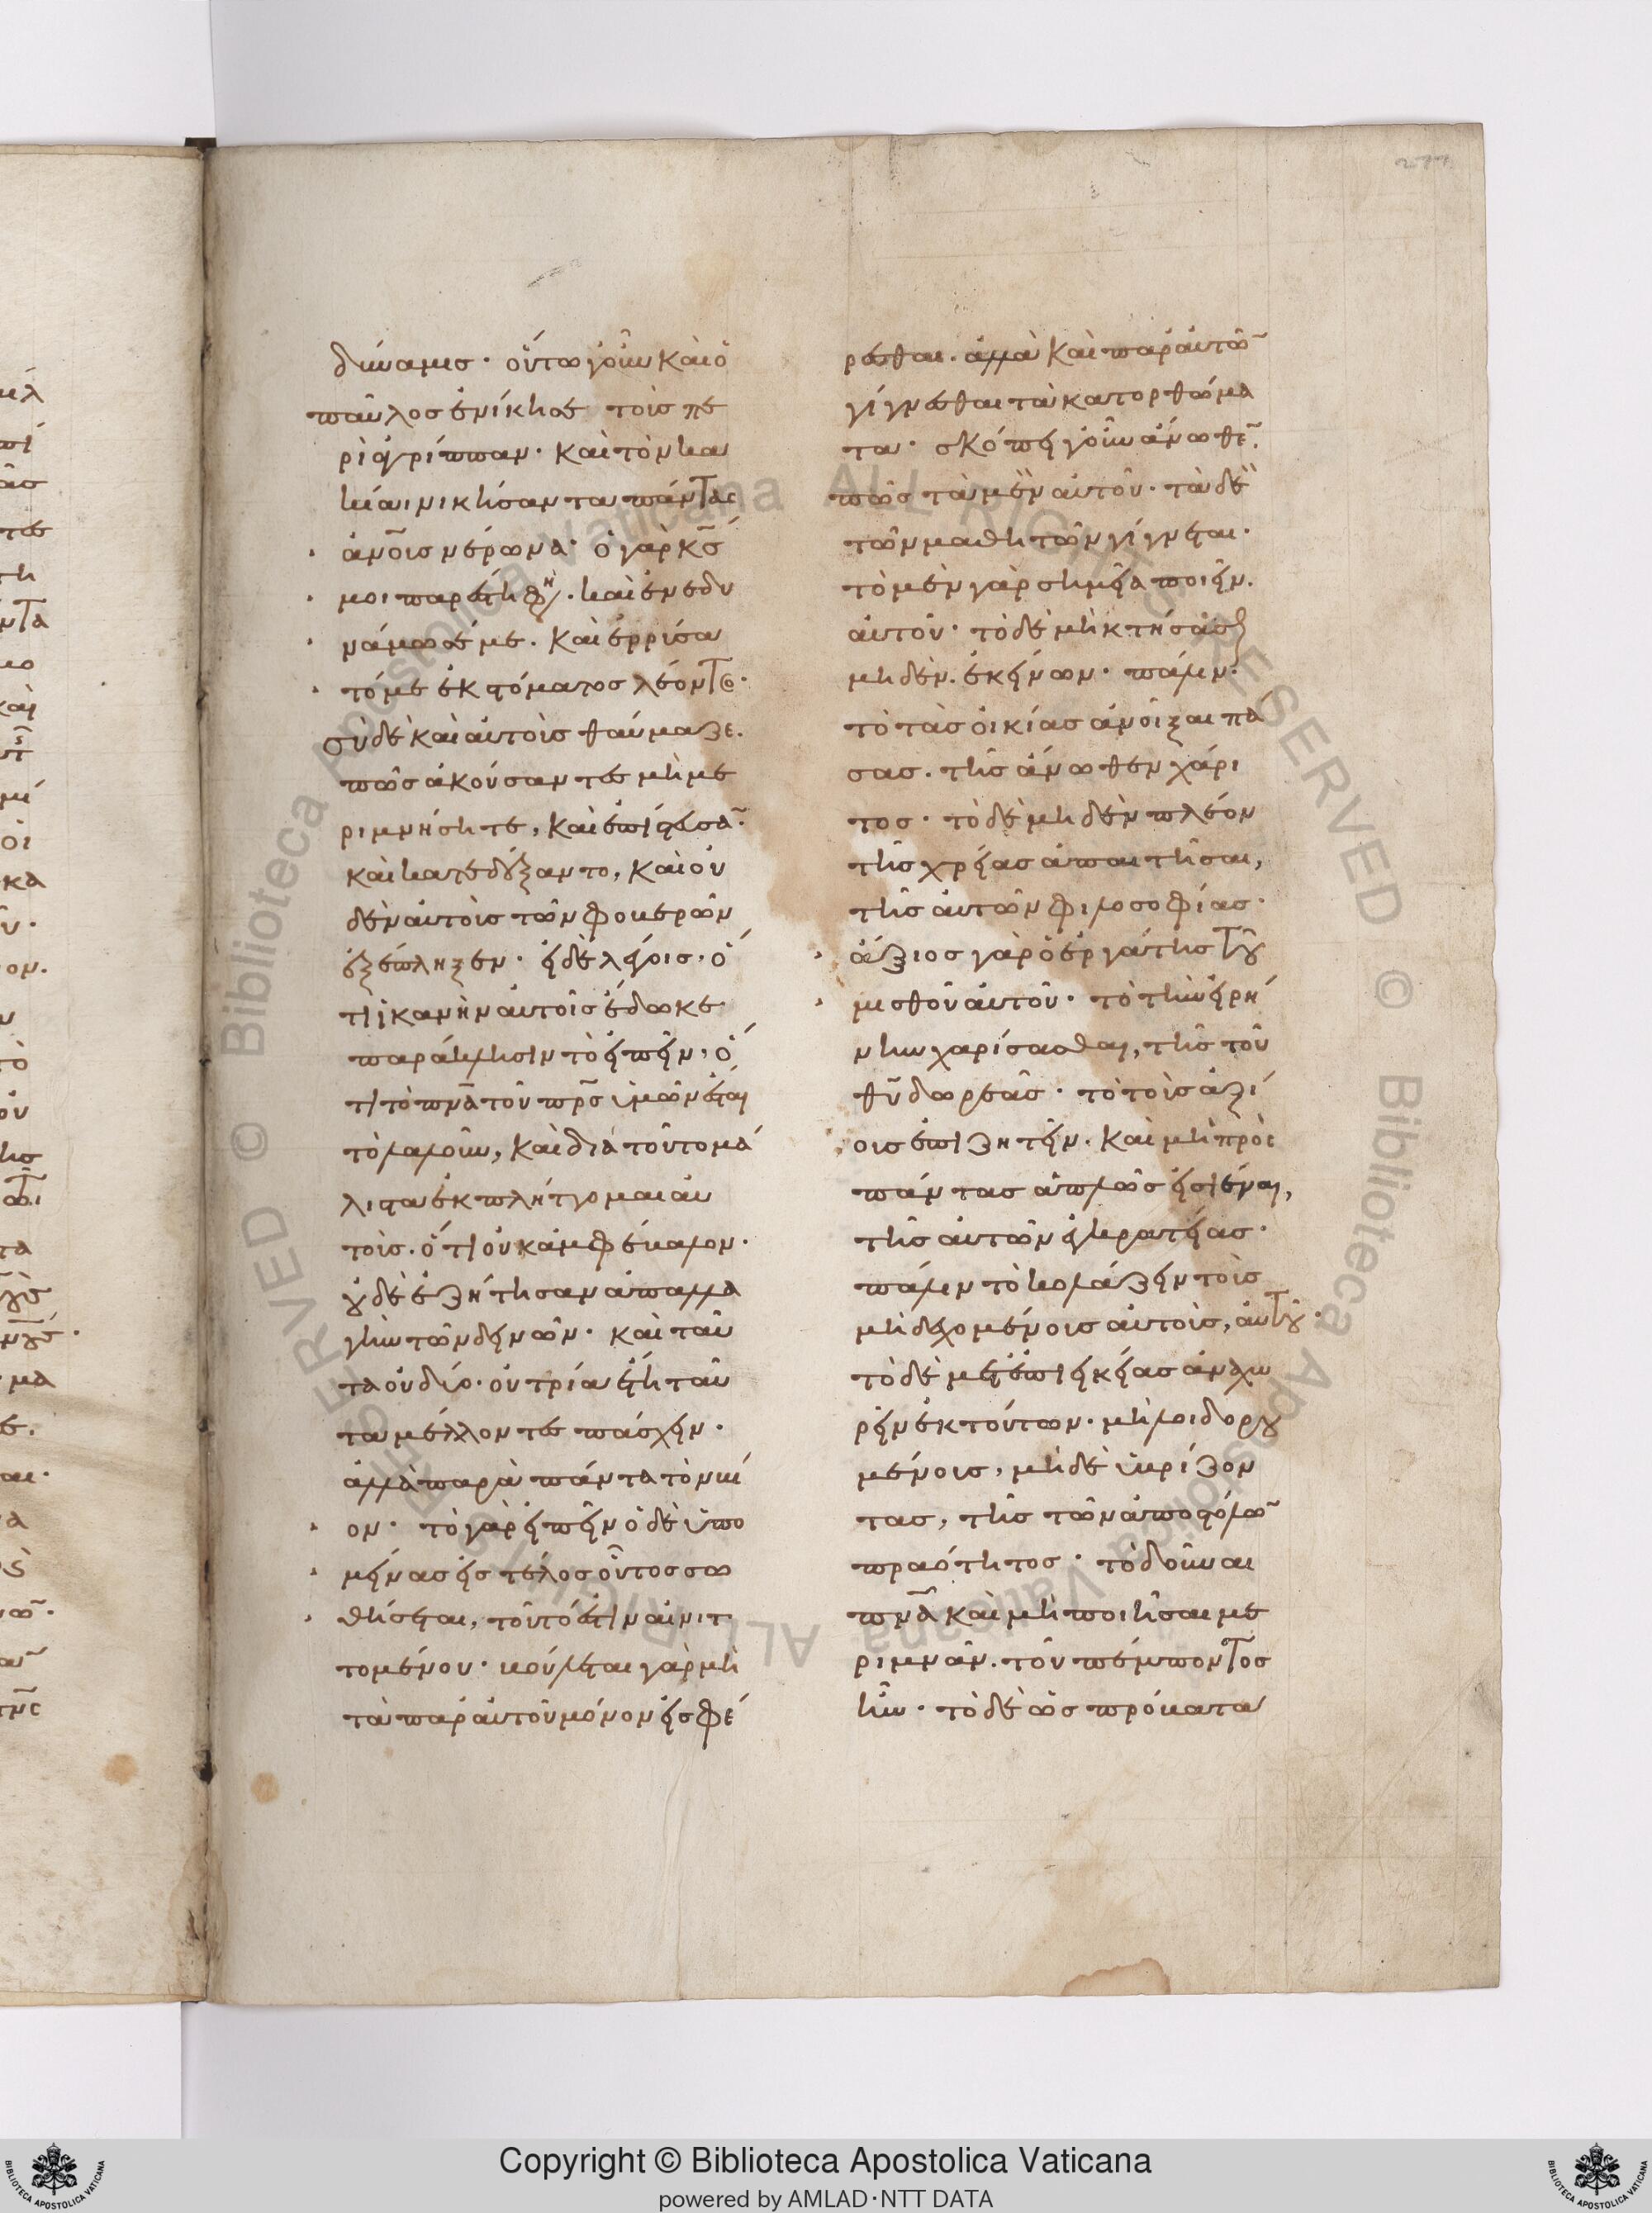 δύναμις· οὕτω γοῦν καὶ ὁ
παῦλος ἐνίκησε τοῖς πε
ρὶ ἀγρίππαν· καὶ τὸν κα
κίαι νικήσαντα πάντας
ἀνο̅ις νέρωνα· ὁ γάρ κ̅ς
μοι παρέστη φη· καὶ ἐνεδυ
νάμωσέ με. καὶ ἐρρύσα
τό με ἐκ στόματος λέοντο·
σὺ δὲ καὶ αὐτοὺς θαύμαζε.
πῶς ἀκούσαντες μὴ με
ριμνήσητε, καὶ ἐπίστευσα̅·
καὶ κατεδέξαντο, καὶ οὐ
δὲν αὐτοὺς τῶν φοβερῶν
ἐξέπληξεν· εἰ δὲ λέγοις, ὅ
τι ἱκανὴν αὐτοῖς ἔδωκε
παράκλησιν τὸ εἰπεῖν, ὅ
τι τὸ πν̅α τοῦ πρ̅ς ὑμῶν ἔσται
τὸ λαλοῦν, καὶ διὰ τοῦτο μά
λιστα ἐκπλήττομαι αὐ
τοὺς. ὅτι οὐκ ἀμφέβαλον·
οὐδὲ ἐζήτησαν ἀπαλλα
γὴν τῶν δεινῶν· καὶ ταῦ
τα οὐ δύο· οὐ τρία ἔτη ταῦ
τα μέλλοντες πάσχειν·
ἀλλὰ παρὰ πάντα τὸν βί
ον· τὸ γὰρ εἰπεῖν ὁ δὲ ὑπο
μείνας εἰς τέλος οὗτος σω
θήσεται, τοῦτό ἐστιν αἰνιτ
τομένου· βούλεται γὰρ μὴ
τὰ παρ' αὐτοῦ μόνον εἰσφέ
ρεσθαι. ἀλλὰ καὶ παρ' αὐτῶ̅
γίγνεσθαι τὰ κατορθώμα
τα· σκόπει γοῦν ἄνωθε̅.
πῶς τὰ μὲν αὐτοῦ· τὰ δὲ
τῶν μαθητῶν γίγνεται·
τὸ μὲν γὰρ σημεῖα ποιεῖν.
αὐτοῦ· τὸ δὲ μὴ κτήσασθαι
μηδὲν. ἐκείνων· πάλιν.
τὸ τὰς οἰκίας ἀνοῖξαι πά
σας. τῆς ἄνωθεν χάρι
τος· τὸ δὲ μηδὲν πλέον
τῆς χρείας ἀπαιτῆσαι,
τῆς αὐτῶν φιλοσοφίας·
ἄξιος γὰρ ὁ ἐργάτης τοῦ
μισθοῦ αὐτοῦ· τὸ τὴν εἰρή
νην χαρίσασθαι, τῆς τοῦ
θ̅υ δωρεᾶς· τὸ τοὺς ἀξί
ους ἐπιζητεῖν. καὶ μὴ πρὸς
πάντας ἁπλῶς εἰσιέναι,
τῆς αὐτῶν ἐγκρατείας·
πάλιν τὸ κολάζειν τοὺς
μὴ δεχομένους αὐτοὺς, αὐτοῦ·
τὸ δὲ μετ' ἐπιεικείας ἀναχω
ρεῖν ἐκ τούτων· μὴ λοιδορου
μένους, μὴ δὲ ὑβρίζον
τας, τῆς τῶν ἀποστόλω̅
πραότητος· τὸ δοῦναι
πν̅α καὶ μὴ ποιῆσαι με
ριμνᾶν. τοῦ πέμποντος
ἦν· τὸ δὲ ὡς πρόβατα
Copyright © Biblioteca Apostolica Vaticana
powered by AMLAD·NTT DATA